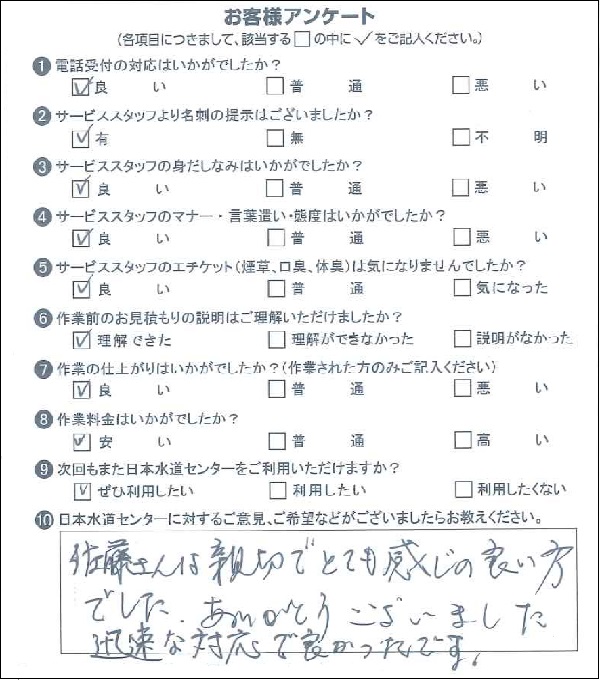 お客様アンケート
(各項目につきまして、該当する□の中に✓をご記入ください。)
❶ 電話受付の対応はいかがでしたか?
☑良い □普通 □悪い
❷ サービススタッフより名刺の提示はございましたか?
☑有 □無 □不明
❸ サービススタッフの身だしなみはいかがでしたか?
☑良い □普通 □悪い
❹ サービススタッフのマナー・言葉遣い・態度はいかがでしたか?
☑良い □普通 □悪い
❺ サービススタッフのエチケット(煙草、口臭、体臭)は気になりませんでしたか?
☑良い □普通 □気になった
❻ 作業前のお見積もりの説明はご理解いただけましたか?
☑理解できた □理解ができなかった □説明がなかった
❼ 作業の仕上がりはいかがでしたか?(作業された方のみご記入ください)
☑良い □普通 □悪い
❽ 作業料金はいかがでしたか?
☑安い □普通 □高い
❾ 次回もまた日本水道センターをご利用いただけますか?
☑ぜひ利用したい □利用したい □利用したくない
❿ 日本水道センターに対するご意見、ご希望などがございましたらお教えください。
佐藤さんは親切でとても感じの良い方
でした。ありがとうございました
迅速な対応で良かったです。